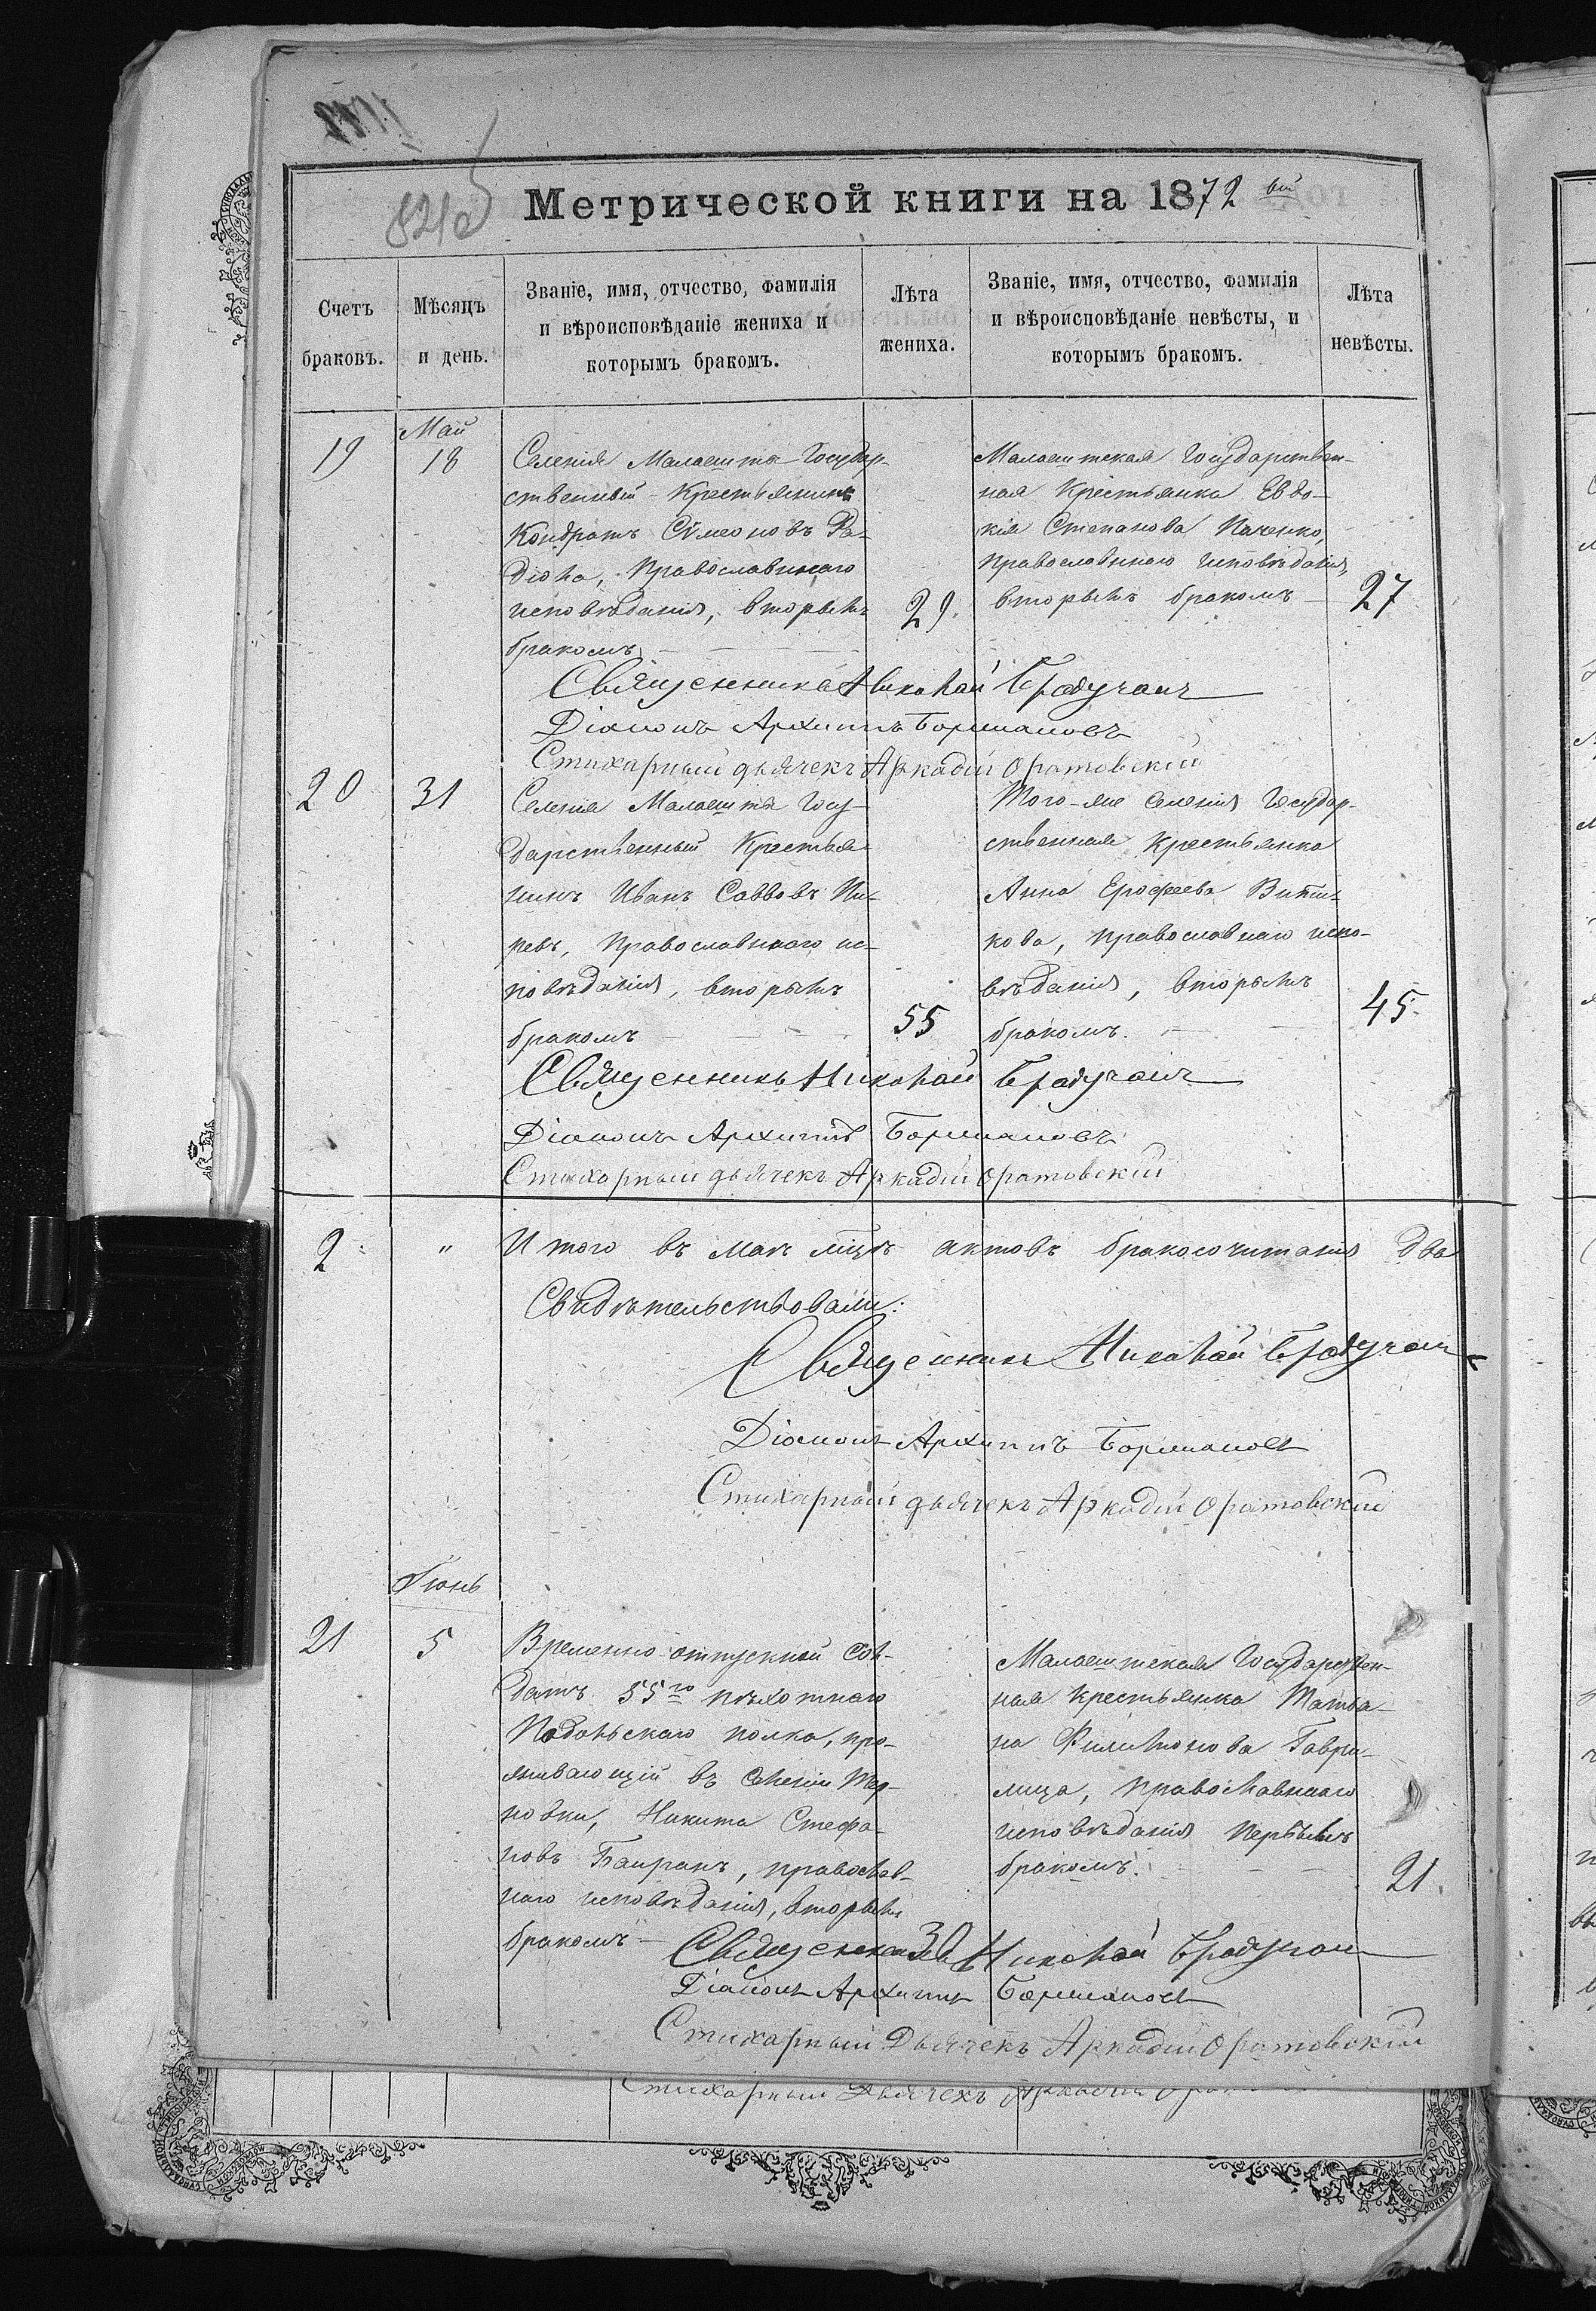 821 об
Метрической книги на 1872 вый
Счетъ браковъ.
Мѣсяцъ и день.
Званіе, имя, отчество, фамилія и вѣроисповѣданіе жениха и которымъ бракомъ.
Лѣта жениха.
Званіе, имя, отчество, фамилія и вѣроисповѣданіе невѣсты, и которымъ бракомъ.
Лѣта невѣсты.
Май
19
18
Селенія Малаешты Государ-
ственный Крестьянинъ
Кондратъ Сѵмеоновъ Ра-
дюка, Православнаго
исповѣданія, вторымъ
бракомъ
29.
Малаештская Государствен-
ная Крестьянка Евдо-
кія Степанова
Православнаго исповѣданія,
вторымъ бракомъ
27
Священникъ Николай Брадучанъ
Діаконъ Архиппъ Бормановъ
Стихарный дьячекъ Аркадій Оратовскій
20
31
Селенія Малаешты Госу-
дарственный Крестья
нинъ Иванъ Саввовъ
Православнаго ис-
повѣданія, вторымъ
бракомъ
55
Того-же селенія Государ-
ственная Крестьянка
Анна Ерофеева Витю-
кова, православнаго испо-
вѣданія, вторымъ
бракомъ.
45
Священникъ Николай Брадучанъ
Діаконъ Архиппъ Бормановъ
Стихарный дьячекъ Аркадій Оратовскій
2
"
Итого въ маѣ мцѣ актовъ бракосочитанія два
Свидѣтельствовали:
Священникъ Николай Брадучанъ
Діаконъ Архиппъ Бормановъ
Стихарный дьячекъ Аркадій Оратовскій
Іюнь
21
5
Временно-отпускной сол-
датъ 55го пѣхотнаго
Подольскаго полка, про-
живающій въ селеніи Тер-
новки, Никита Стефа-
новъ Баиранъ, православ-
наго исповѣданія, вторымъ
бракомъ
30
Малаештская Государствен-
ная крестьянка Татья-
на Филимонова Гаври-
лица, православнаго
исповѣданія первымъ
бракомъ.
21.
Священникъ Николай Брадучанъ
Діаконъ Архиппъ Бормановъ
Стихарный Дьячекъ Аркадій Оратовскій
Стихарный Дьячекъ Аркадій